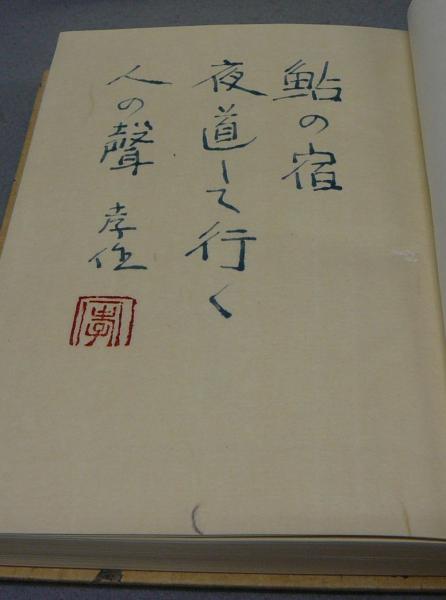 鮎の宿
夜道して行く
人の聲
孝作
孝